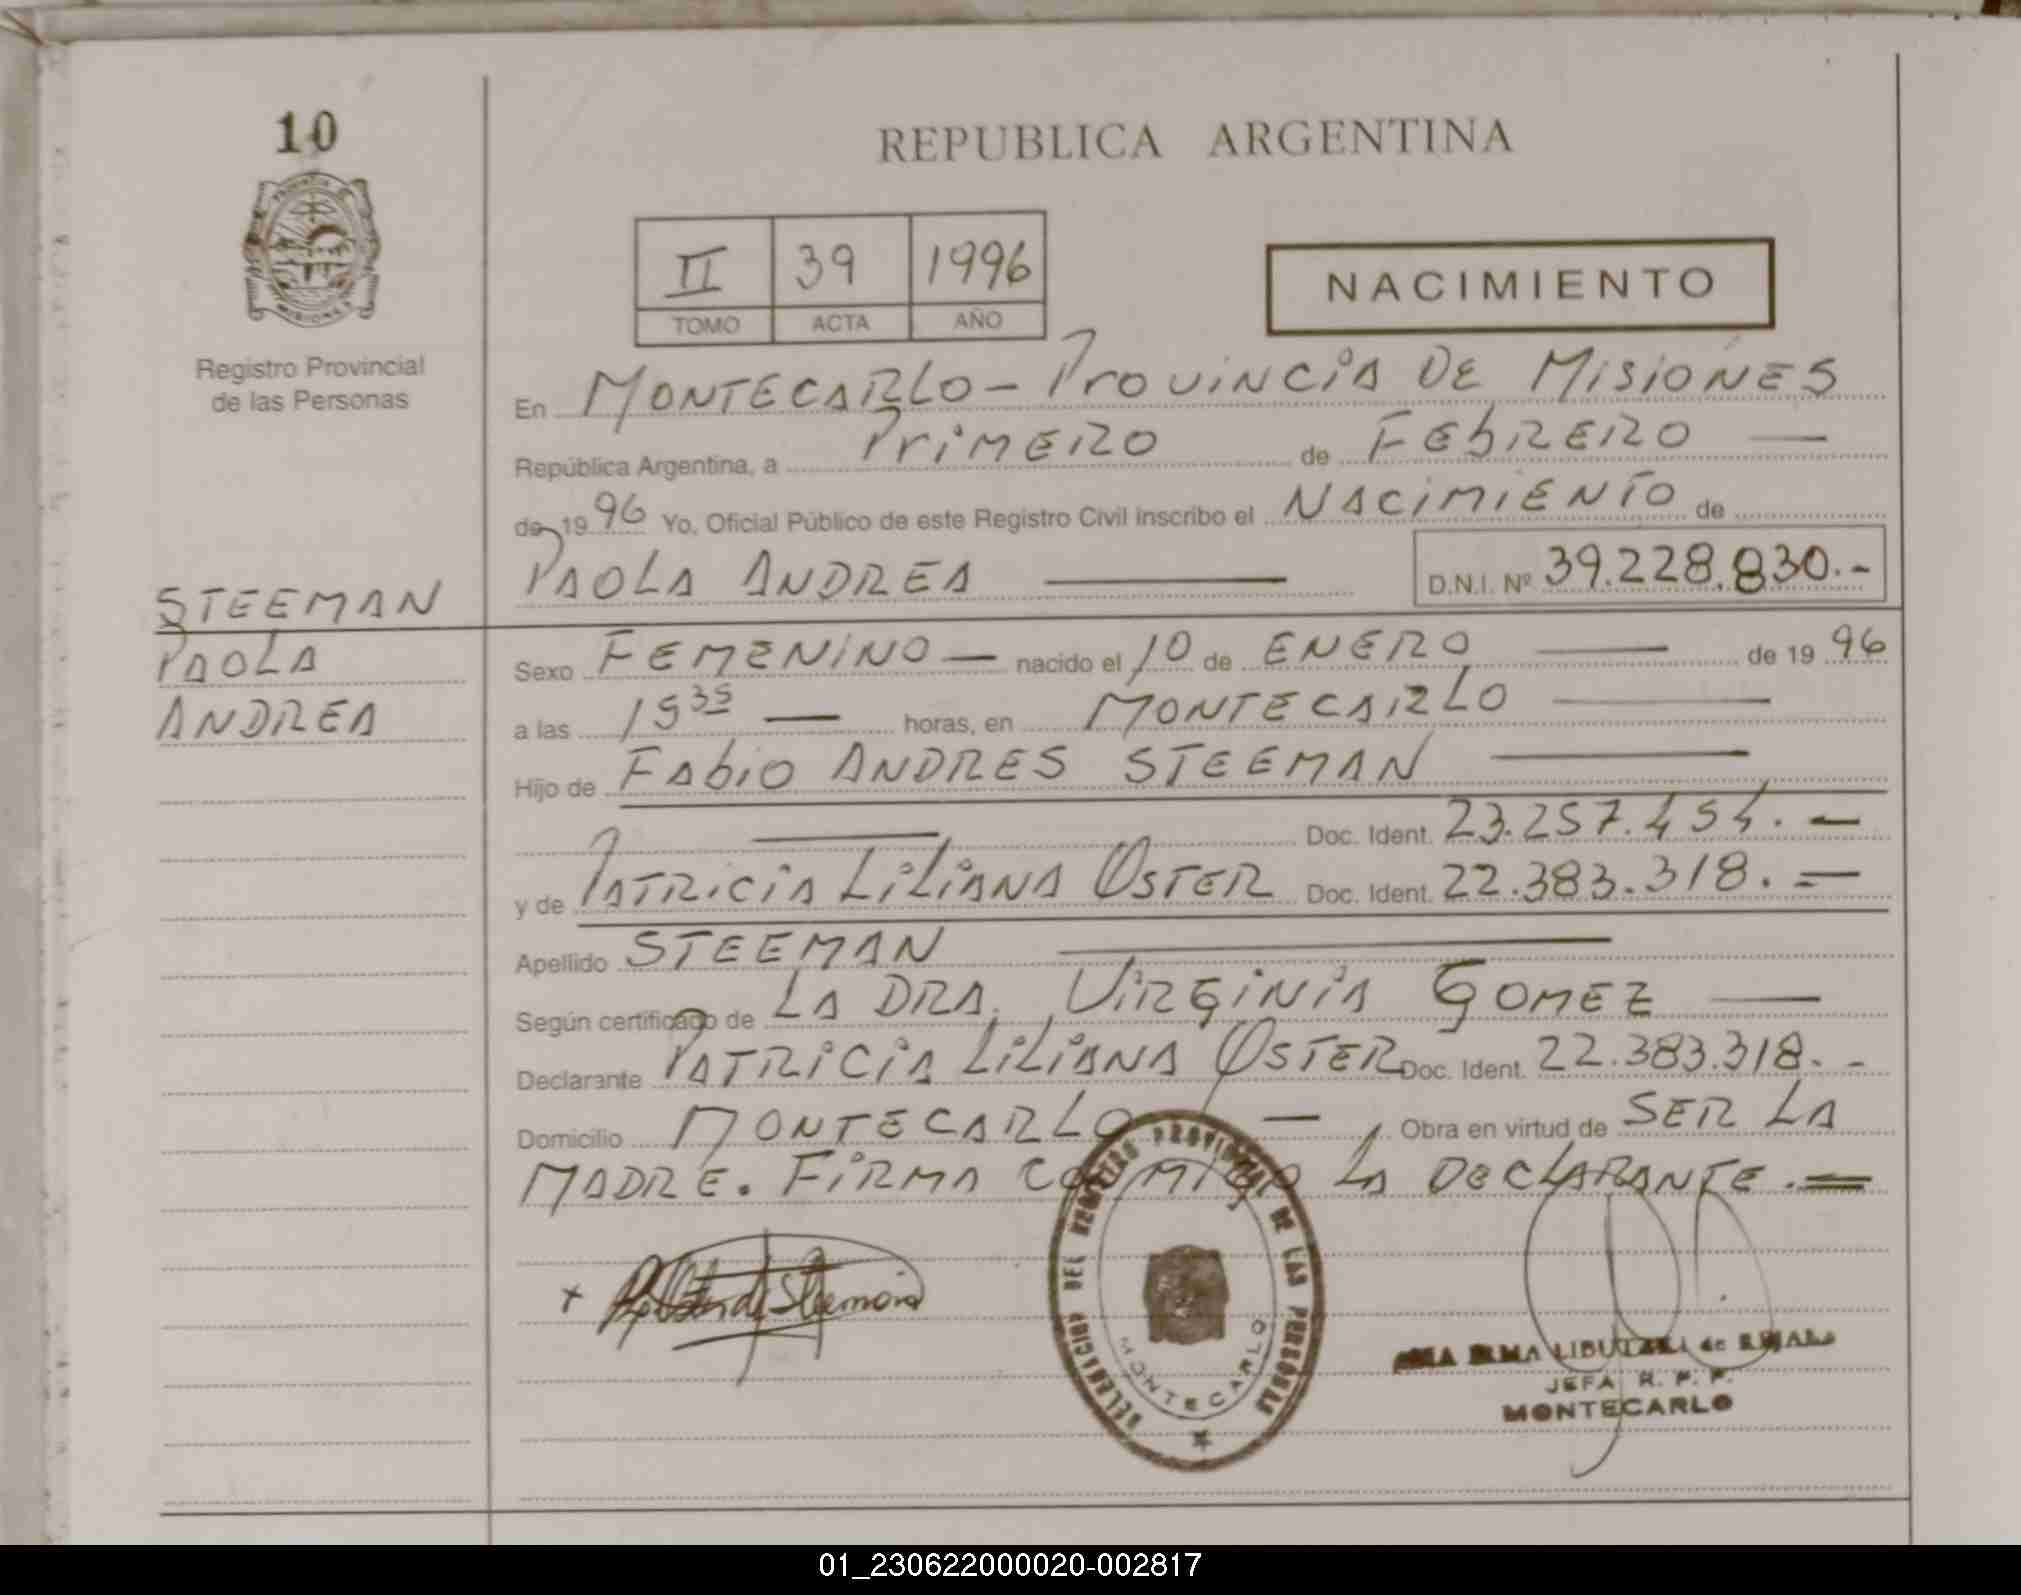 10
REPUBLICA ARGENTINA
II 39 1996
TOMO ACTA AÑO
NACIMIENTO
Registro Provincial
de las Personas
En MONTECARLO - PROVINCIA DE MISIONES
República Argentina, a PRIMERO de FEBRERO —
de 1996 Yo, Oficial Público de este Registro Civil inscribo el NACIMIENTO de
PAOLA ANDREA — D.N.I. Nº 39.228.830.-
STEEMAN
PAOLA
ANDREA
Sexo FEMENINO — nacido el 10 de ENERO — de 1996
a las 15 35 — horas, en MONTECARLO —
Hijo de FABIO ANDRES STEEMAN —
— Doc. Ident. 23.257.454. —
y de PATRICIA LILIANA OSTER Doc. Ident. 22.383.318. —
Apellido STEEMAN —
Según certificado de LA DRA. VIRGINIA GOMEZ —
Declarante PATRICIA LILIANA OSTER Doc. Ident. 22.383.318. -
Domicilio MONTECARLO — Obra en virtud de SER LA
MADRE. FIRMA CONMIGO LA DECLARANTE. =
DELEGACION DEL REGISTRO PROVINCIAL DE LAS PERSONAS
MONTECARLO
IRMA de
JEFA R. P. P.
MONTECARLO
01_230622000020-002817